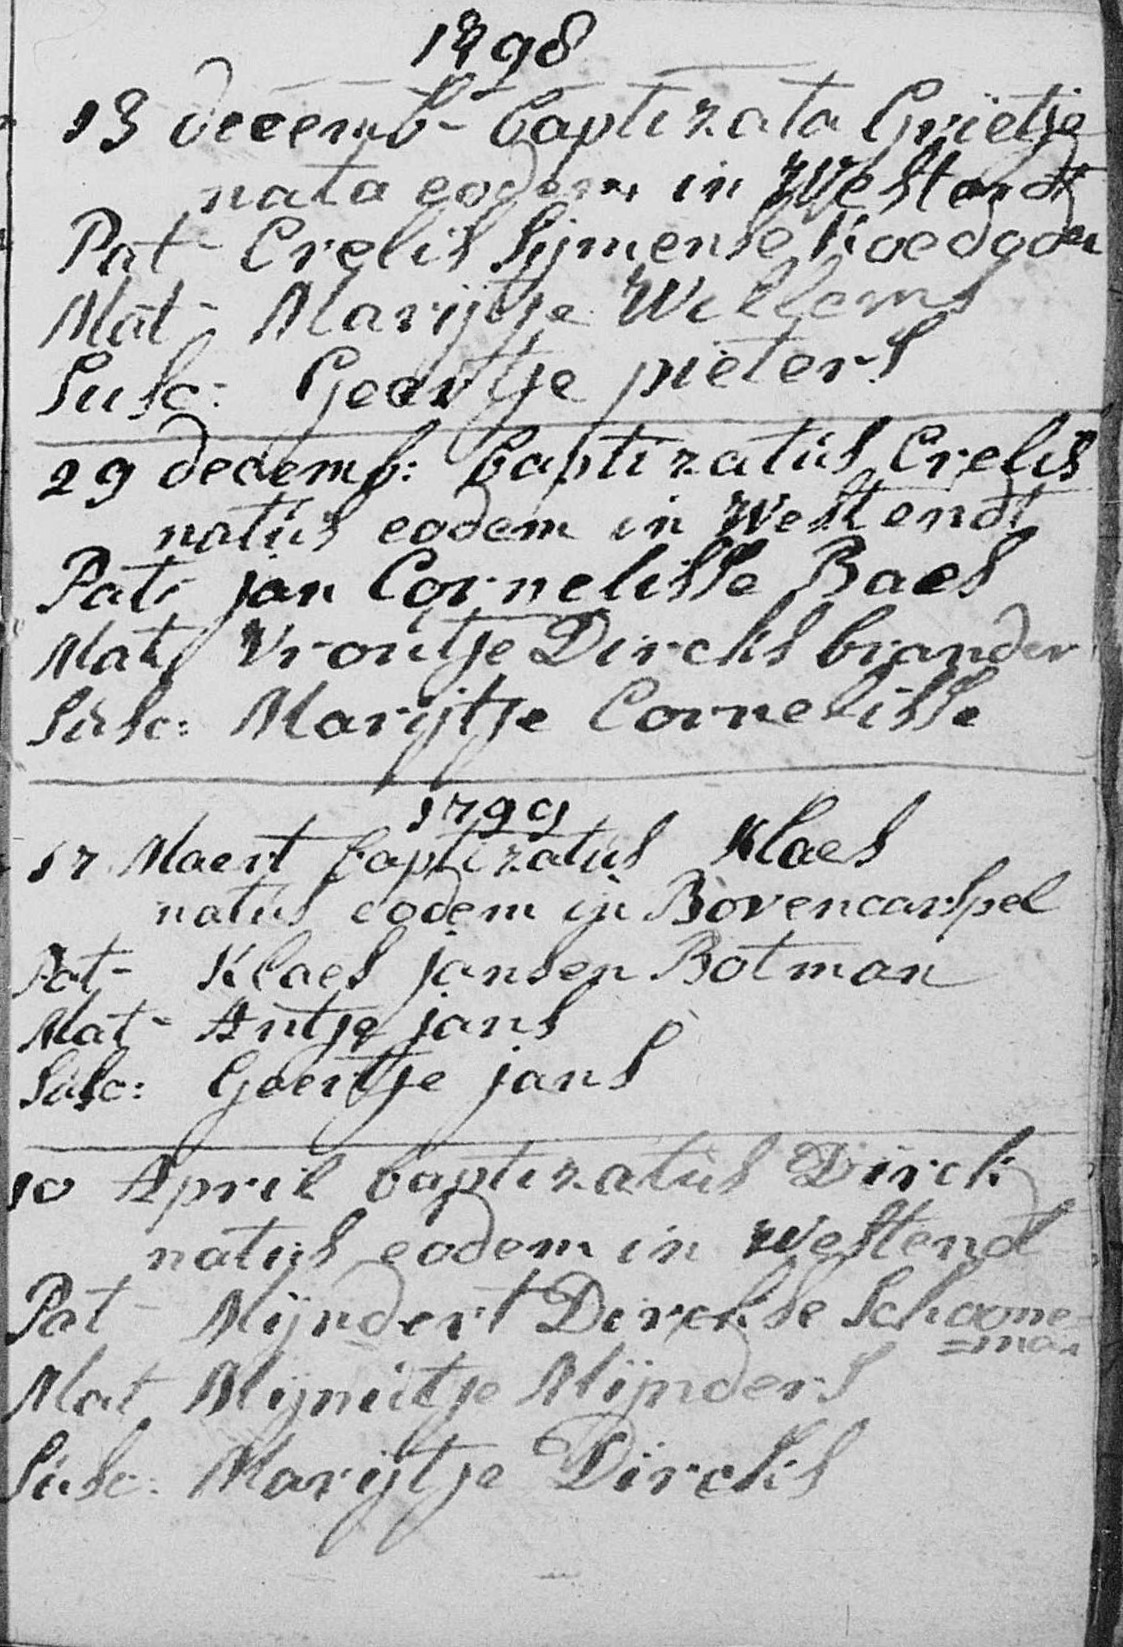 1798
13 decemb- baptizata Grietje
nata eodem in Westendt
Pat- Crelis Sijmense Koedooder
Mat- Marijtje Willems
Susc: Geertje pieters
29 decemb: baptizatus Crelis
natus eodem in Westendt
Pat- jan Cornelisse Baes
Mat, Vroutje Dircks brander
Susc: Marijtje Cornelisse
1799
17 Maert baptizatus Klaes
natus eodem in Bovencarspel
Pat- Klaes jansen Botman
Mat- Antje jans
Susc: Geertje jans
10 April baptizatus Dirck
natus eodem in Westend
Pat- Mijndert Dirckse Schoone=
=man
Mat, Mijnutje Mijnders
Susc: Marijtje Dircks